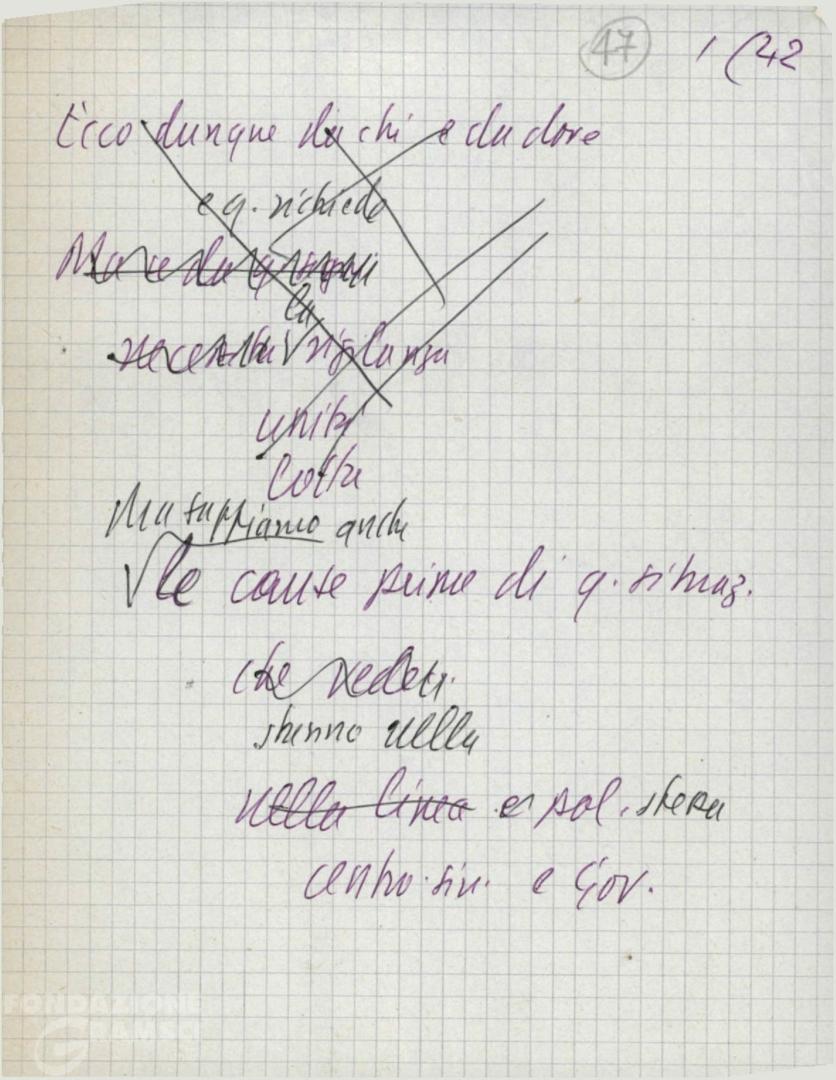 47 1 (42
Ecco dunque da chi e da dove
e q. richiede
Ma ce da q.
necessita la vigilanza
unità
lotta
Ma sappiamo anche
le cause prime di q. situaz.
che vedete
stanno nella
nella linea e pol. stessa
centro-sin. e Gov.
FONDAZIONE
GRAMSCI